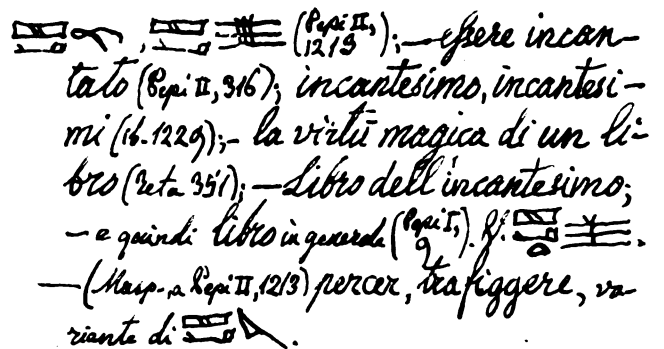 (Pepi II, 1213); — essere incan-
tato (Pepi II, 316); incantesimo, incantesi-
mi (ib. 1229); — la virtù magica di un li-
bro (Zeta 351); — Libro dell'incantesimo;
— e quindi libro in generale (Pepi I, 9). f.
— (Masp., a Pepi II, 1213) percer, trafiggere, va-
riante di